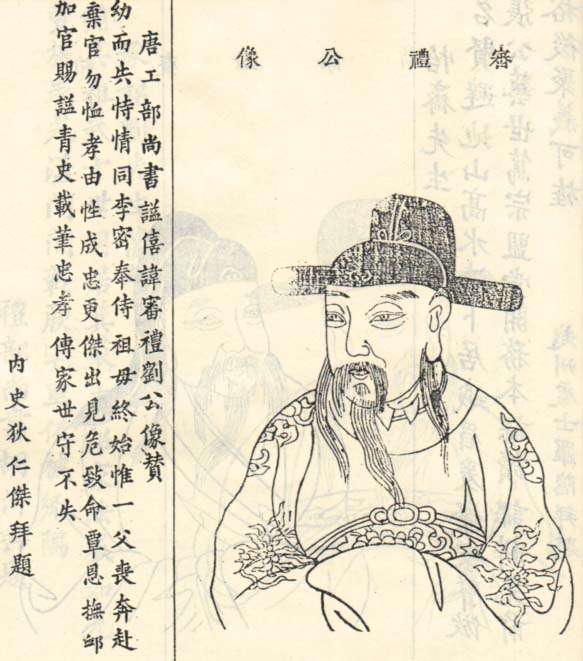 審禮公像
唐工部尚書謚僖諱審禮劉公像贊
幼而失恃情同李密奉侍祖母終始惟一父喪奔赴
棄官勿恤孝由性成忠更傑出見危致命覃恩撫卹
加官賜謚青史載筆忠孝傳家世守不失
內史狄仁傑拜題